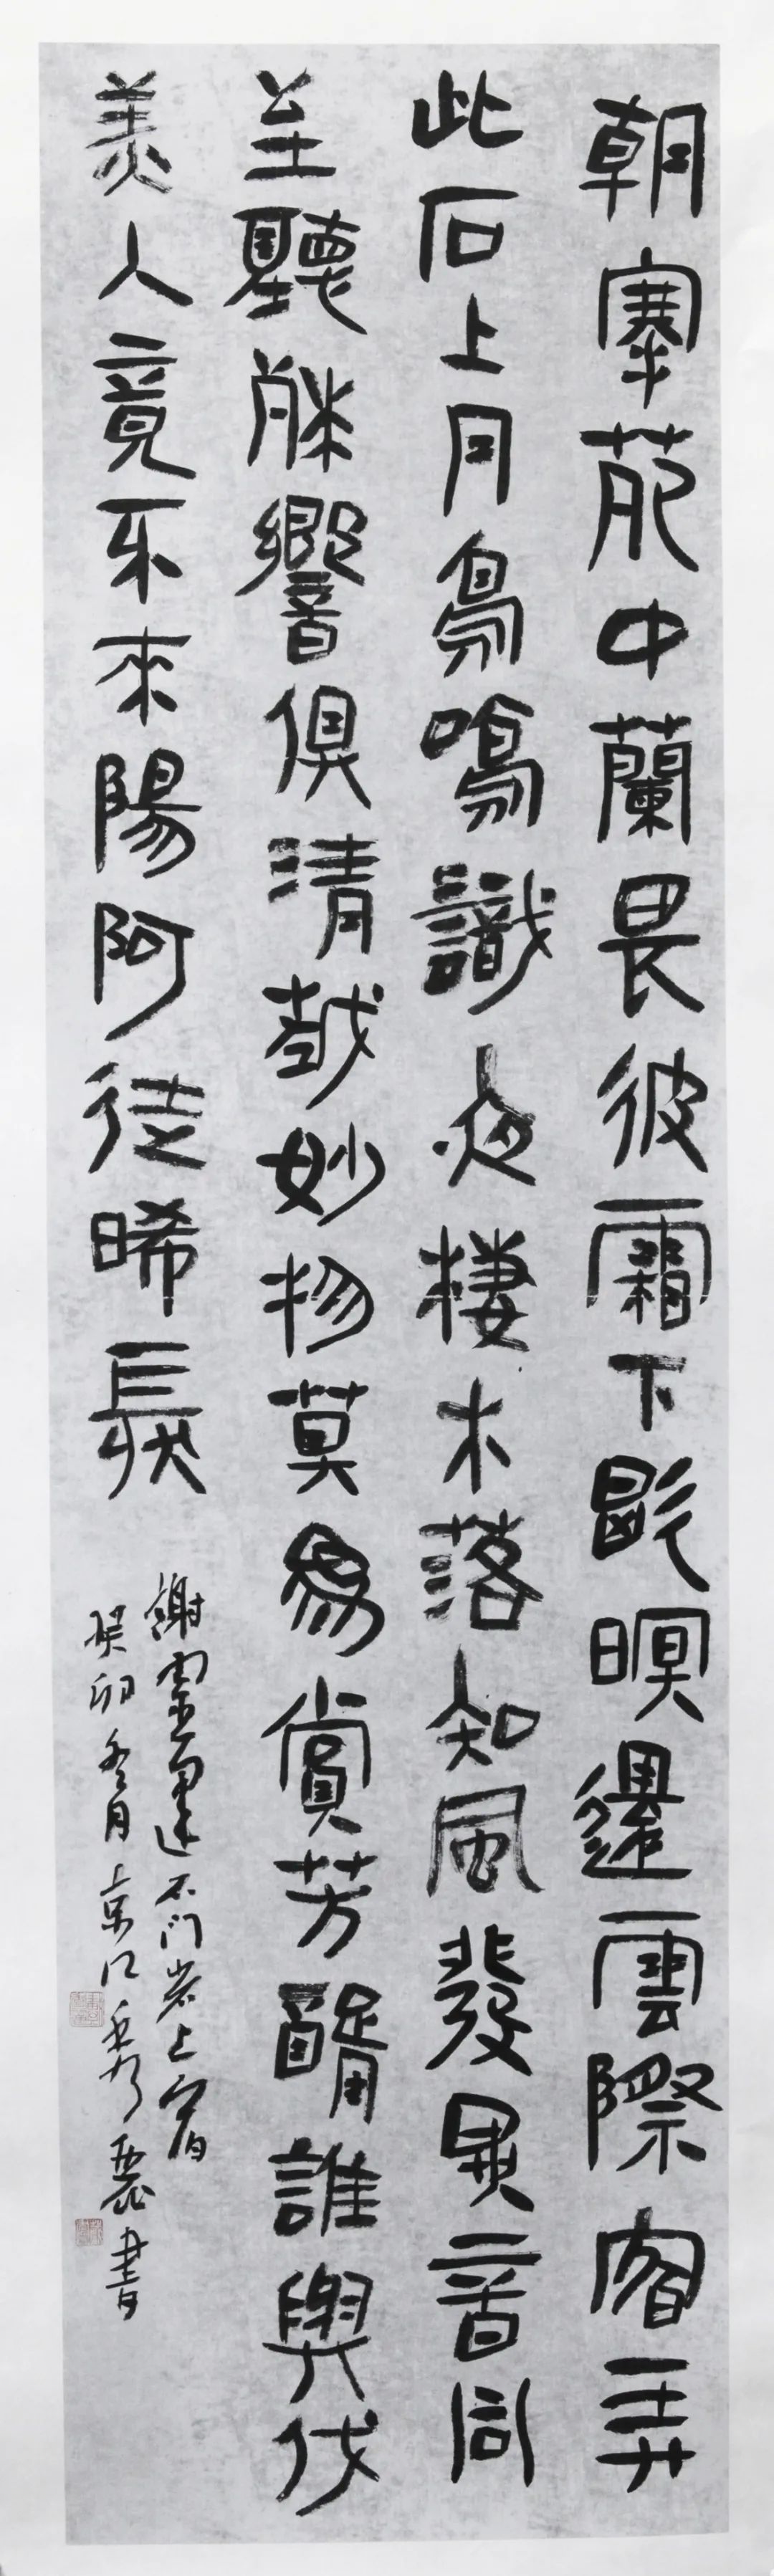 朝搴苑中蘭畏彼霜下歇暝還雲際宿弄
此石上月鳥鳴識夜棲木落知風發異音同
至聽殊響俱清越妙物莫為賞芳醑誰與伐
美人竟不來陽阿徒晞髮
謝靈運石門岩上宿
癸卯冬月京口秀麗書